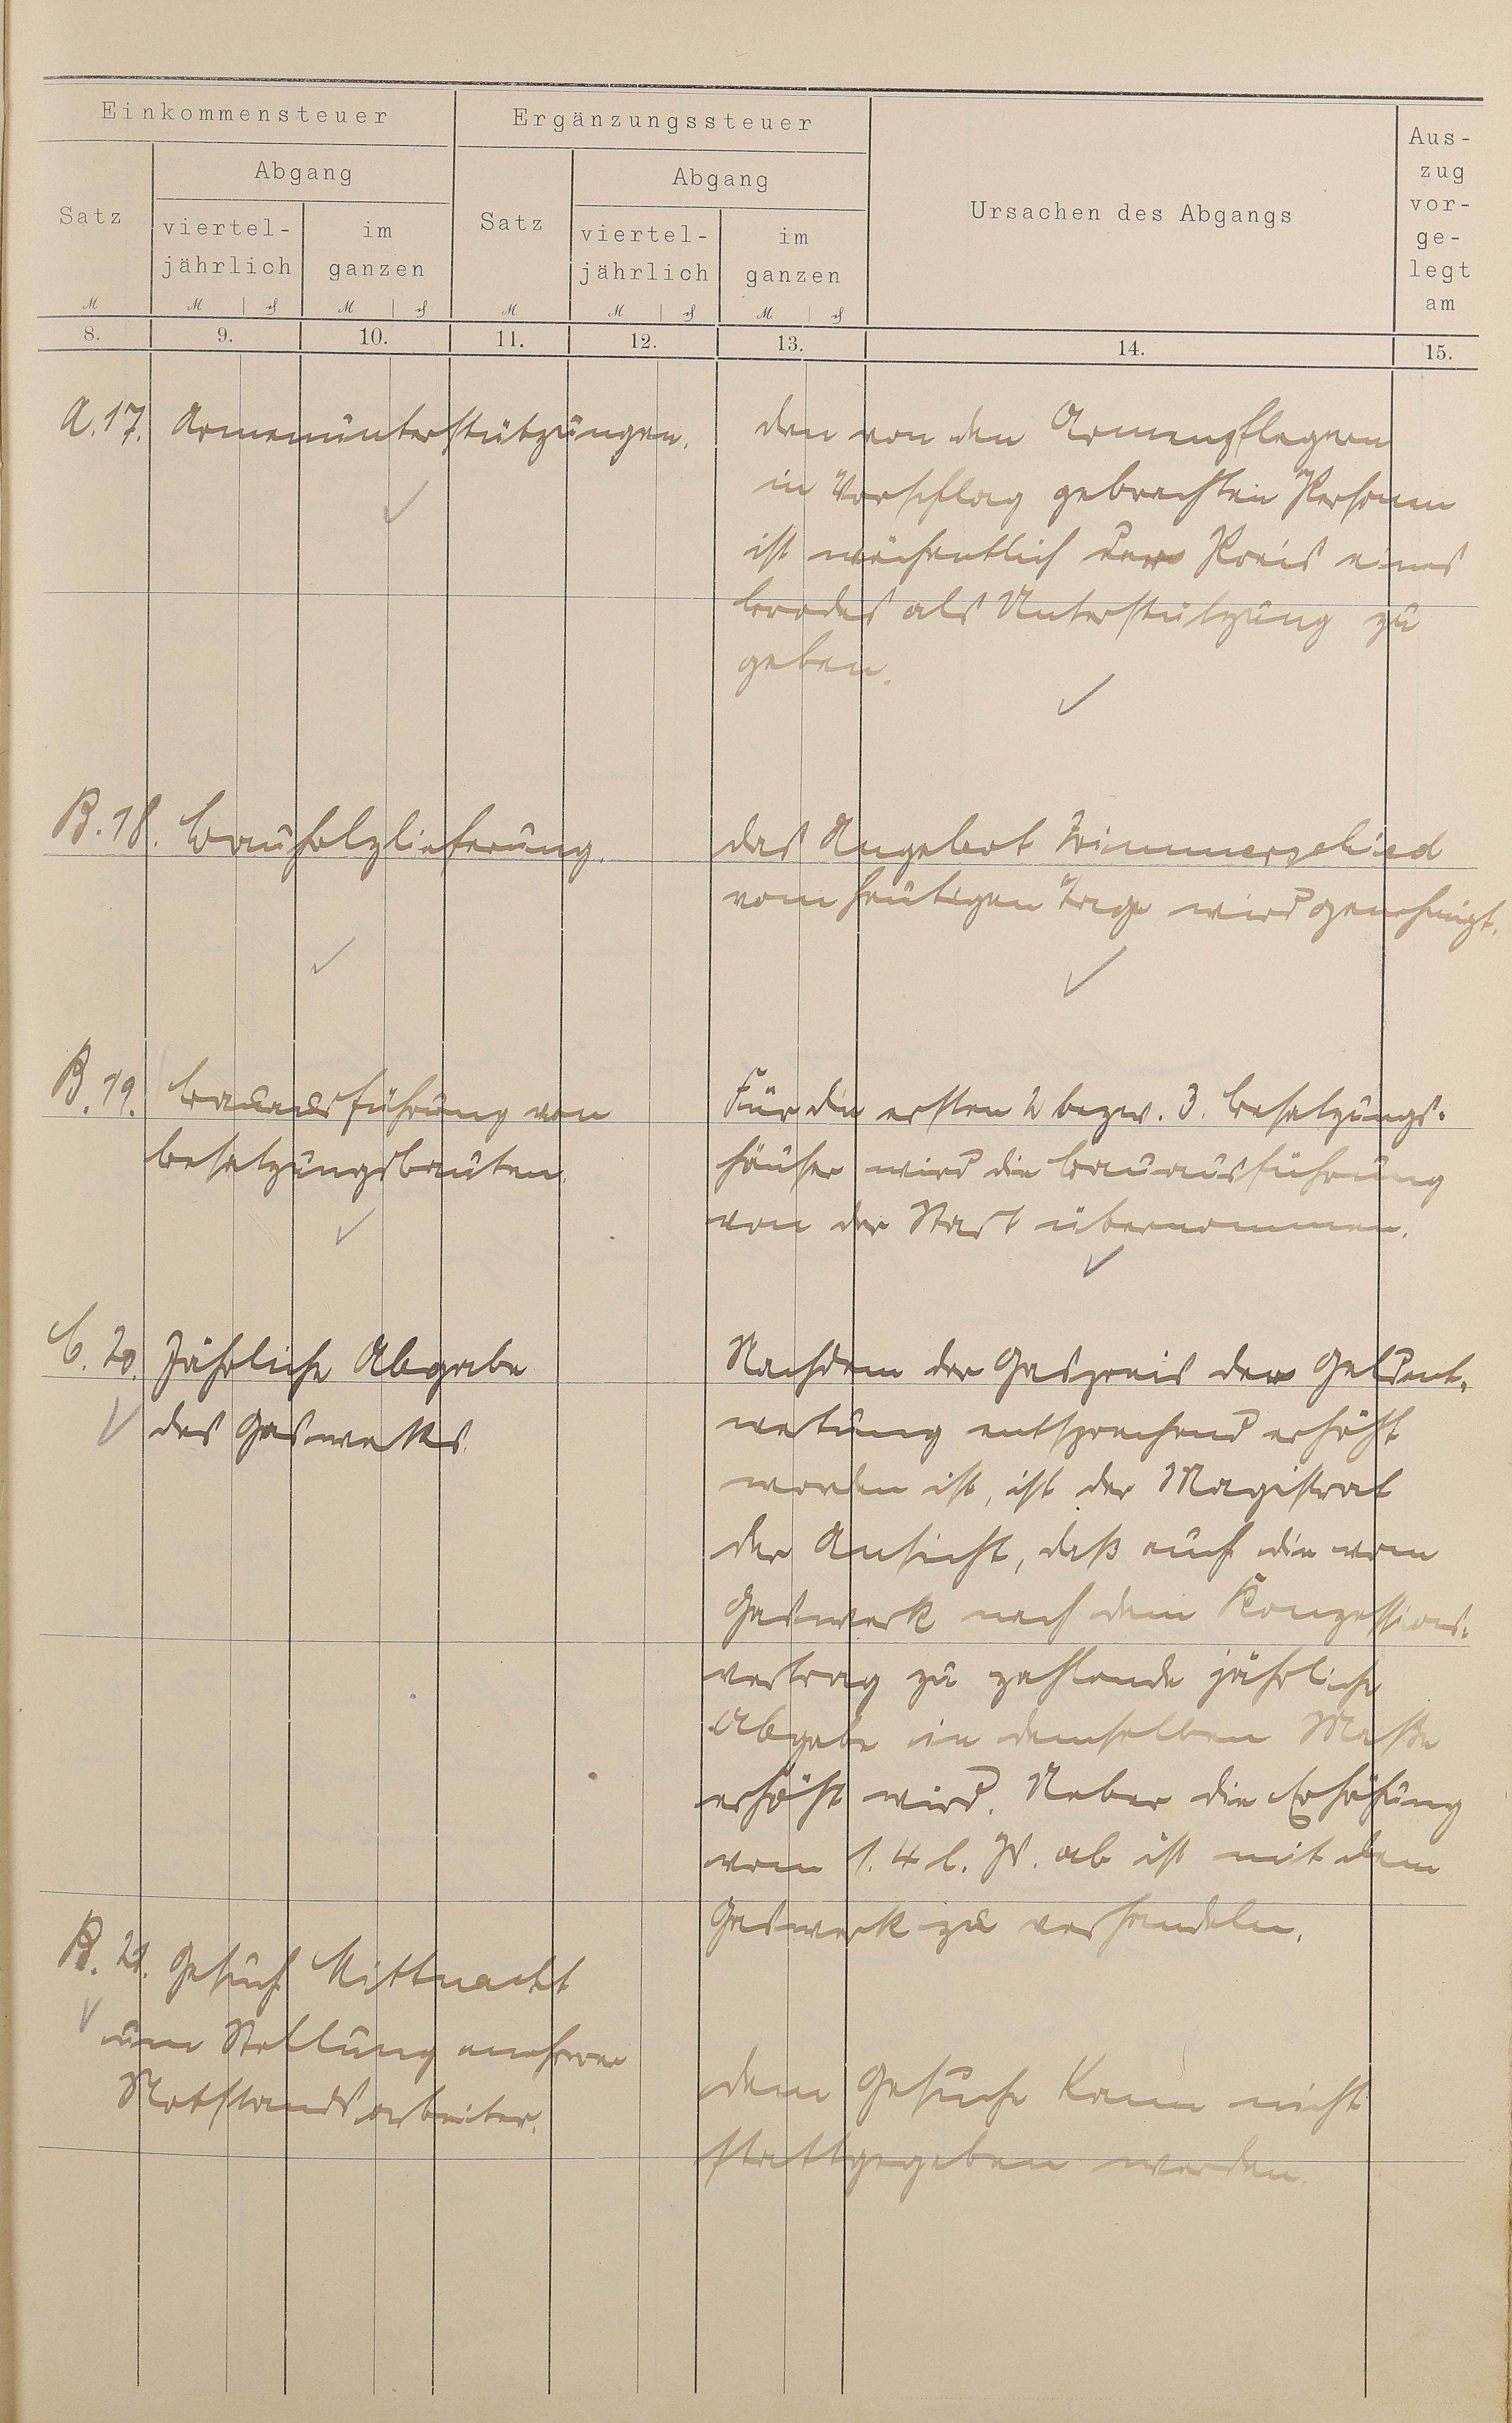 Einkommensteuer
Ergänzungssteuer
Ursachen des Abgangs
Aus-
zug
vor-
ge-
legt
am
Satz
Abgang
Satz
Abgang
viertel-
jährlich
im
ganzen
viertel-
jährlich
im
ganzen
M
M | ₰
M | ₰
M
M | ₰
M | ₰
8. 9. 10. 11. 12. 13. 14. 15.
A. 17. Armenunterstützungen.
den von den Armenpflegern
in Vorschlag gebrachten Personen
ist wöchentlich der Preis eines
Brodes als Unterstützung zu
geben.
B. 18. Bauholzlieferung.
das Angebot Zimmerschied
vom heutigen Tage wird genehmigt.
B. 19. Bauausführung von
Besatzungsbauten.
Für die ersten 2 bezw. 3. Besatzungs-
häuser wird die Bauausführung
von der Stadt übernommen.
C. 20. Jährliche Abgabe
des Gaswerks.
Nachdem der Gaspreis der Geldent-
wertung entsprechend erhöht
worden ist, ist der Magistrat
der Ansicht, daß auch die vom
Gaswerk nach dem Konzessions-
vertrag zu zahlende jährliche
Abgabe in demselben Maße
erhöht wird. Ueber die Erhöhung
vom 1. 4 l. Js. ab ist mit dem
Gaswerk zu verhandeln.
B. 21. Gesuch Mittnacht
um Stellung mehrerer
Notstandsarbeiter.
dem Gesuche kann nicht
stattgegeben werden.